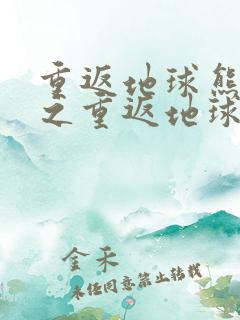 重返地球熊
之重返地球
金禾
未经同意禁止转载